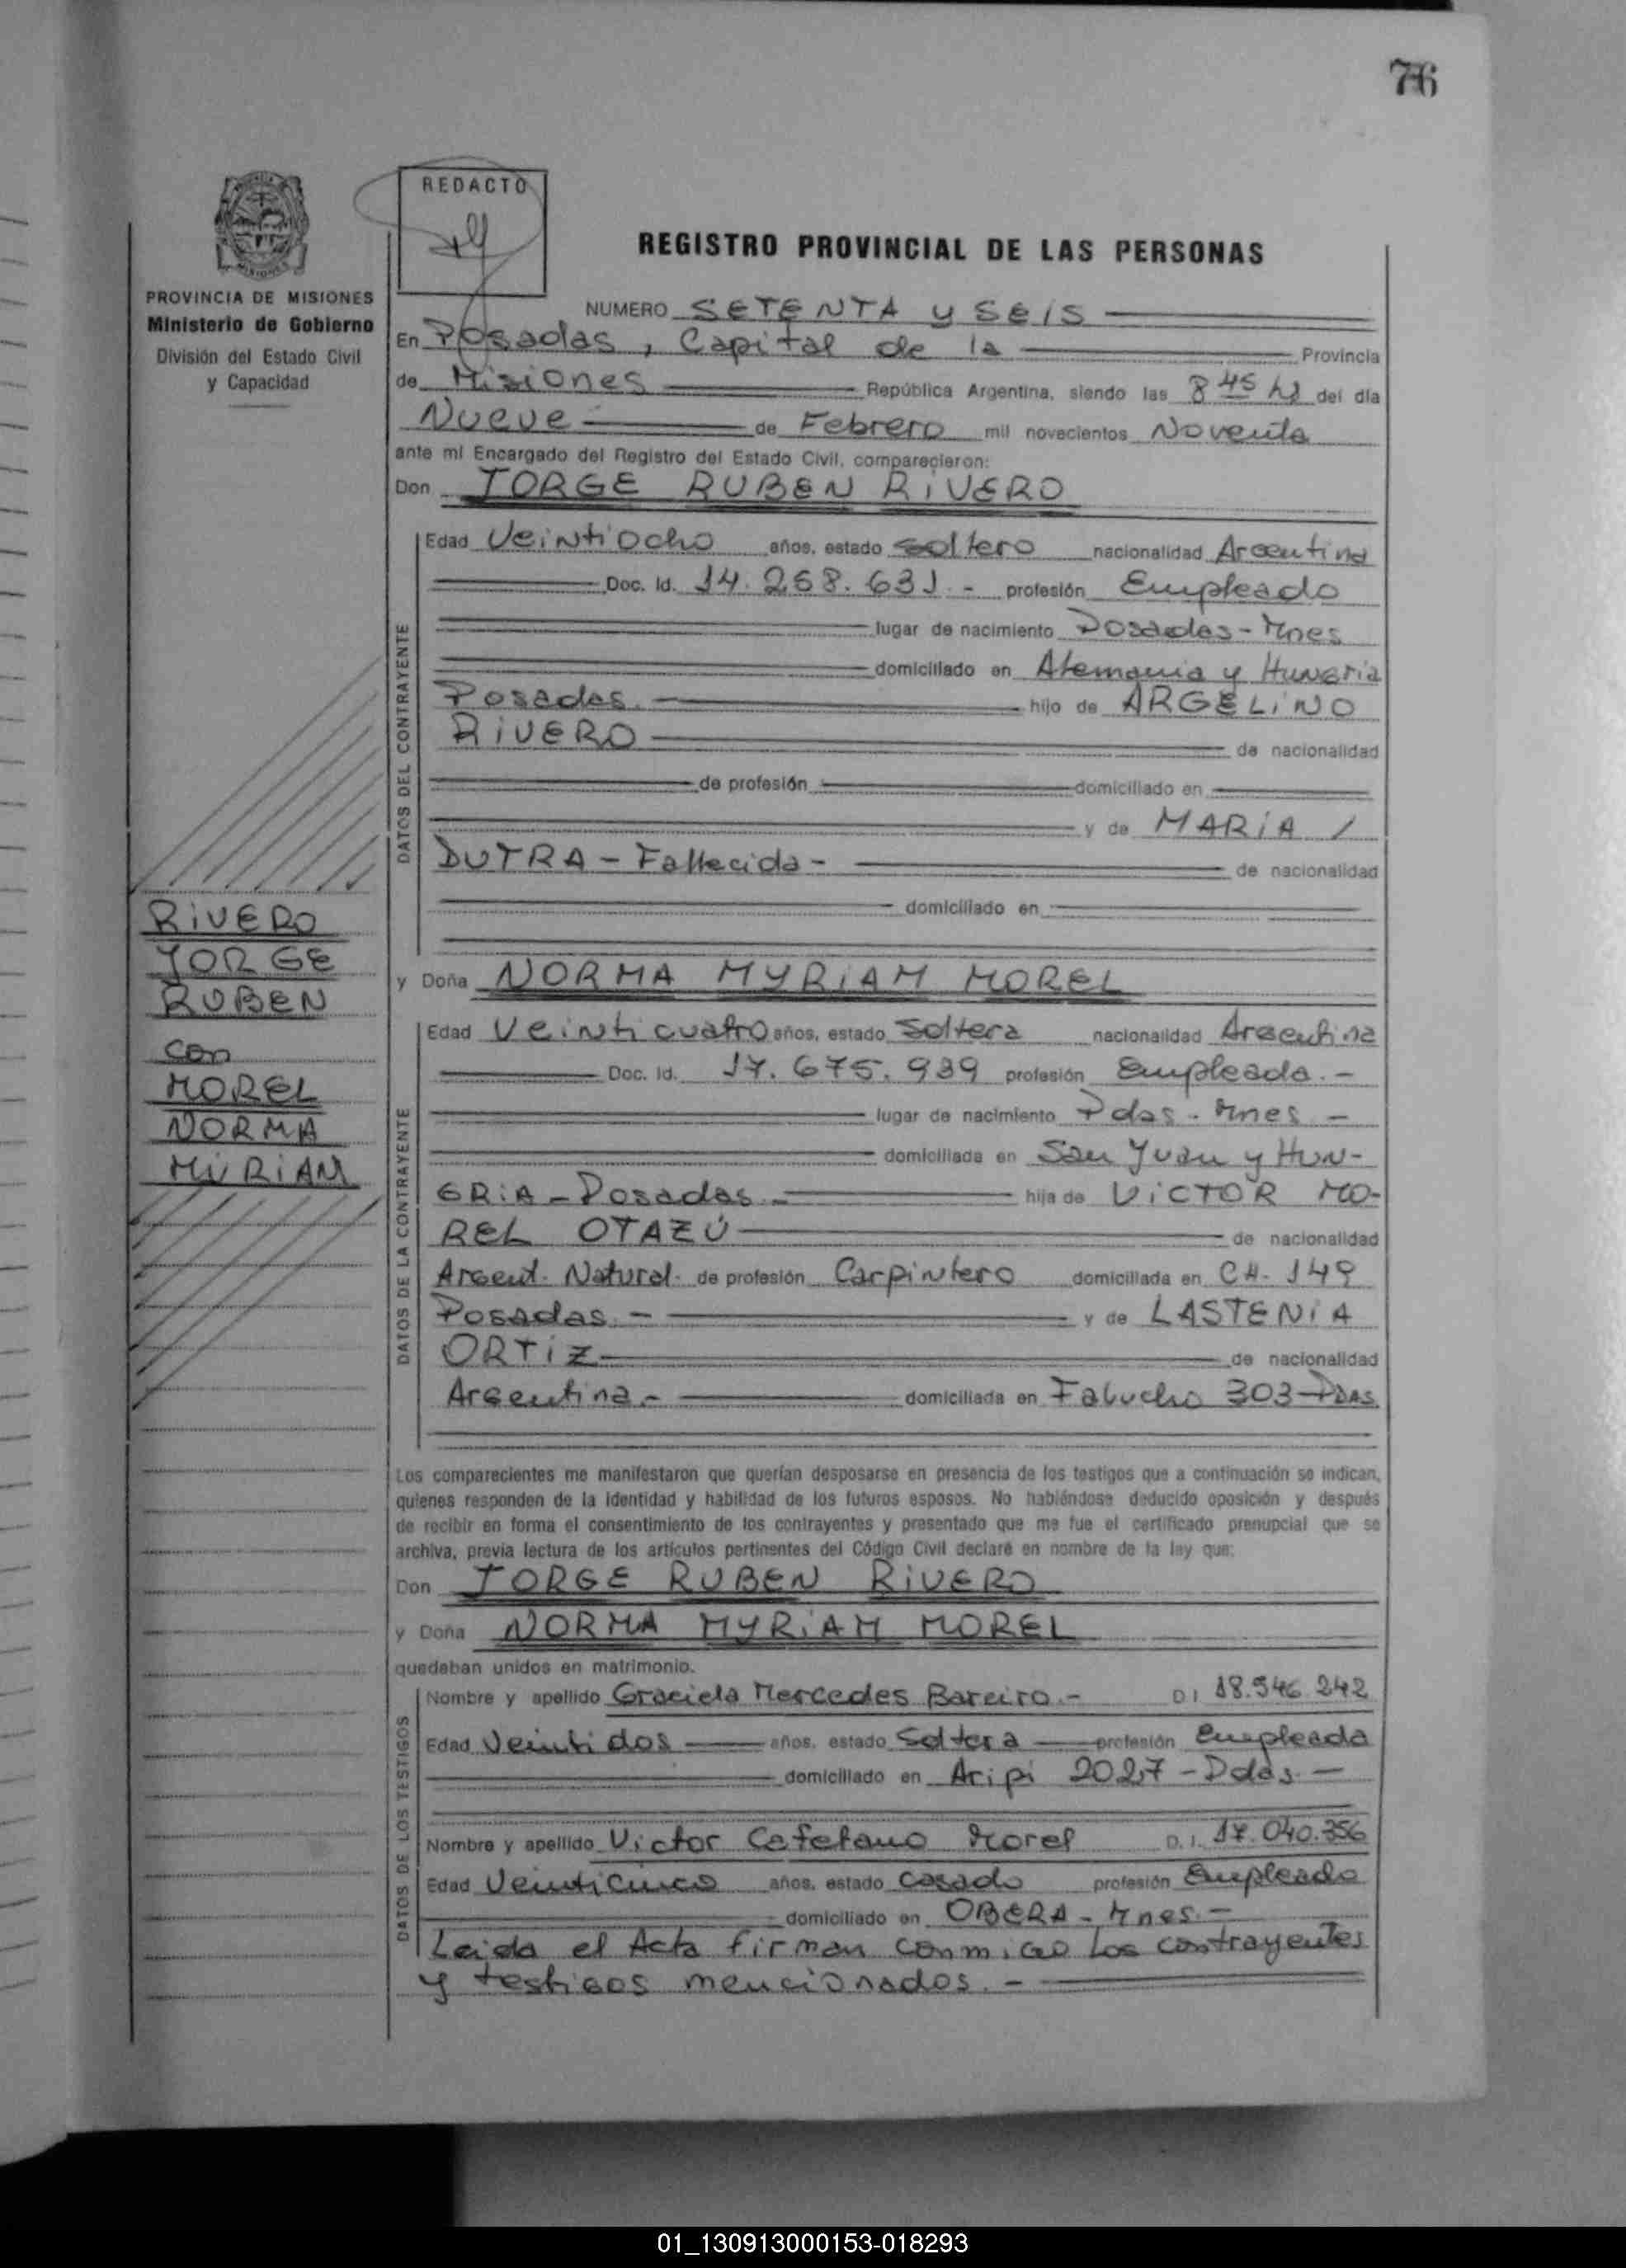 76
REDACTO
REGISTRO PROVINCIAL DE LAS PERSONAS
PROVINCIA DE MISIONES
Ministerio de Gobierno
División del Estado Civil
y Capacidad
NUMERO SETENTA y SEIS
En Posadas, Capital de la Provincia
de Misiones República Argentina, siendo las 8 45 hs del día
Nueve de Febrero mil novecientos Noventa
ante mí Encargado del Registro del Estado Civil, comparecieron:
Don JORGE RUBEN RIVERO
DATOS DEL CONTRAYENTE
Edad Veintiocho años, estado soltero nacionalidad Argentina
Doc. Id. 14.258.631.- profesión Empleado
lugar de nacimiento Posadas-Mnes
domiciliado en Alemania y Hungria
Posadas. hijo de ARGELINO
RIVERO de nacionalidad
de profesión domiciliado en
y de MARIA /
DUTRA - Fallecida - de nacionalidad
domiciliado en
RIVERO
JORGE
RUBEN
con
MOREL
NORMA
MIRIAM
y Doña NORMA MYRIAM MOREL
DATOS DE LA CONTRAYENTE
Edad Veinticuatro años, estado Soltera nacionalidad Argentina
Doc. Id. 17.675.939 profesión Empleada.-
lugar de nacimiento Pdas. Mnes -
domiciliada en San Juan y HUN-
GRIA - Posadas.- hija de VICTOR MO-
REL OTAZÚ de nacionalidad
Argent. Natural. de profesión Carpintero domiciliada en CH. 149
Posadas.- y de LASTENIA
ORTIZ de nacionalidad
Argentina.- domiciliada en Falucho 303-PDAS.
Los comparecientes me manifestaron que querían desposarse en presencia de los testigos que a continuación se indican,
quienes responden de la identidad y habilidad de los futuros esposos. No habiéndose deducido oposición y después
de recibir en forma el consentimiento de los contrayentes y presentado que me fue el certificado prenupcial que se
archiva, previa lectura de los artículos pertinentes del Código Civil declaré en nombre de la ley que:
Don JORGE RUBEN RIVERO
y Doña NORMA MYRIAM MOREL
quedaban unidos en matrimonio.
DATOS DE LOS TESTIGOS
Nombre y apellido Graciela Mercedes Bareiro.- D I 18.546.242
Edad Veintidos años, estado Soltera profesión Empleada
domiciliado en Aripi 2027 - Pdas.-
Nombre y apellido Victor Cafetano Morel D. I. 17.040.356
Edad Veinticinco años, estado casado profesión Empleado
domiciliado en OBERA - Mnes.-
Leida el Acta firman conmigo los contrayentes
y testigos mencionados.-
01_130913000153-018293